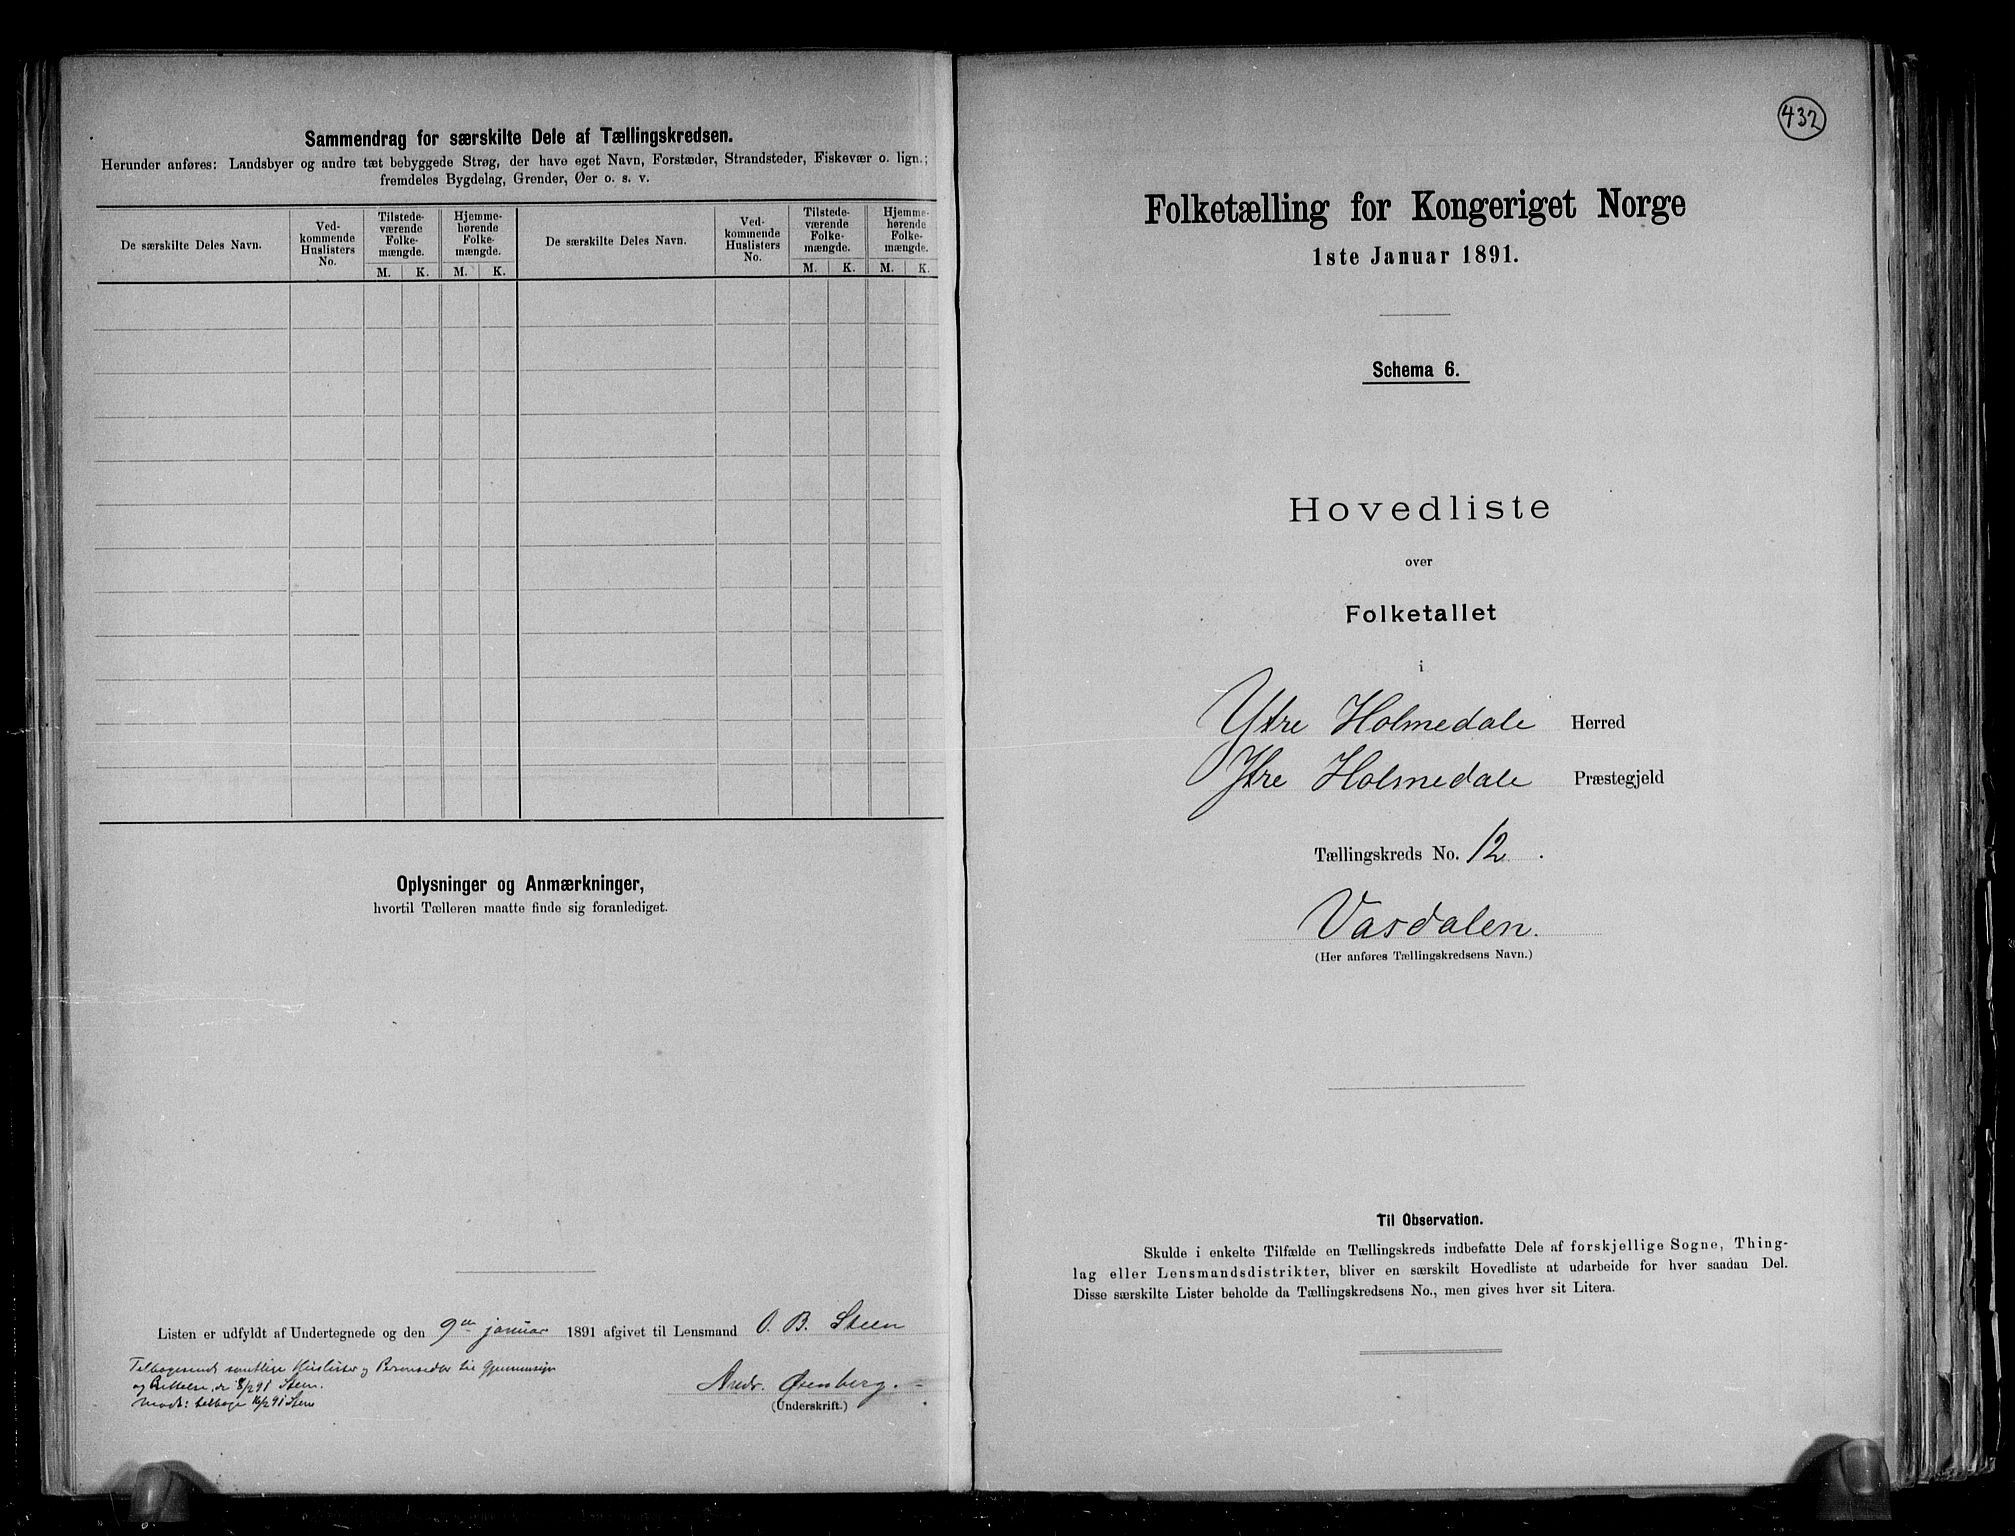 Sammendrag for særskilte Dele af Tællingskredsen.
Herunder anføres: Landsbyer og andre tæt bebyggede Strøg, der have eget Navn, Forstæder, Strandsteder, Fiskevær o. lign.;
fremdeles Bygdelag, Grender, Øer o. s. v.
De særskilte Deles Navn.
Ved-
kommende
Huslisters
No.
Tilstede-
værende
Folke-
mængde.
M. K.
Hjemme-
hørende
Folke-
mængde.
M. K.
De særskilte Deles Navn.
Ved-
kommende
Huslisters
No.
Tilstede-
værende
Folke-
mængde.
M. K.
Hjemme-
hørende
Folke-
mængde.
M. K.
Oplysninger og Anmærkninger,
hvortil Tælleren maatte finde sig foranlediget.
Listen er udfyldt af Undertegnede og den 9de januar 1891 afgivet til Lensmand O. B. Steen
samtlige Huslister og Personsedler til
og 8/2 91 Steen.
tilbage 16/2 91 Steen
Andr. Øxenberg.
(Underskrift.)
432
Folketælling for Kongeriget Norge
1ste Januar 1891.
Schema 6.
Hovedliste
over
Folketallet
i
Ytre Holmedale Herred
Ytre Holmedale Præstegjeld
Tællingskreds No. 12.
Vasdalen.
(Her anføres Tællingskredsens Navn.)
Til Observation.
Skulde i enkelte Tilfælde en Tællingskreds indbefatte Dele af forskjellige Sogne, Thing-
lag eller Lensmandsdistrikter, bliver en særskilt Hovedliste at udarbeide for hver saadan Del.
Disse særskilte Lister beholde da Tællingskredsens No., men gives hver sit Litera.